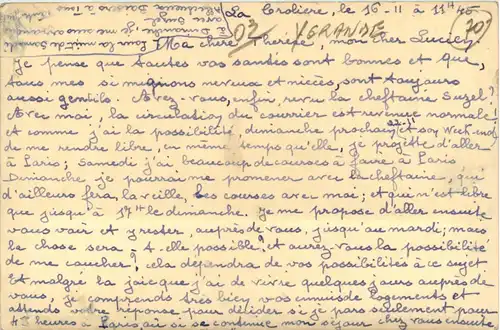 La Crolière, le 16-11 à 11h 45
03 YGRANDE
70
Ma chère Thérèse, mon cher Lucien,
Je pense que toutes vos santés sont bonnes et que,
tous mes si mignons neveux et nièces, sont toujours
aussi gentils. Avez-vous, enfin, revu la cheftaine Suzel?
Avec moi, la circulation du courrier est revenue normale!
et comme j'ai la possibilité, dimanche prochain, 22-11, et son Week-end
de me rendre libre, en même temps qu'elle, je projette d'aller
à Paris; Samedi j'ai beaucoup de courses à faire à Paris
Dimanche je pourrai me promener avec la cheftaine, qui
d'ailleurs fera, la veille, les courses avec moi; et qui n'est libre
que jusqu'à 17h le dimanche. Je me propose d'aller ensuite
vous voir et y rester, auprès de vous, jusqu'au mardi; mais
la chose sera-t-elle possible? et aurez-vous la possibilité
de me coucher? cela dépendra de vos possibilités à ce sujet
Et malgré la joie que j'ai de vivre quelques jours auprès de
vous, je comprends très bien vos ennuis de logements et
attends votre réponse pour décider si je pars seulement pour
48 heures à Paris, ou si se continue mon séjour chez vous ensuite